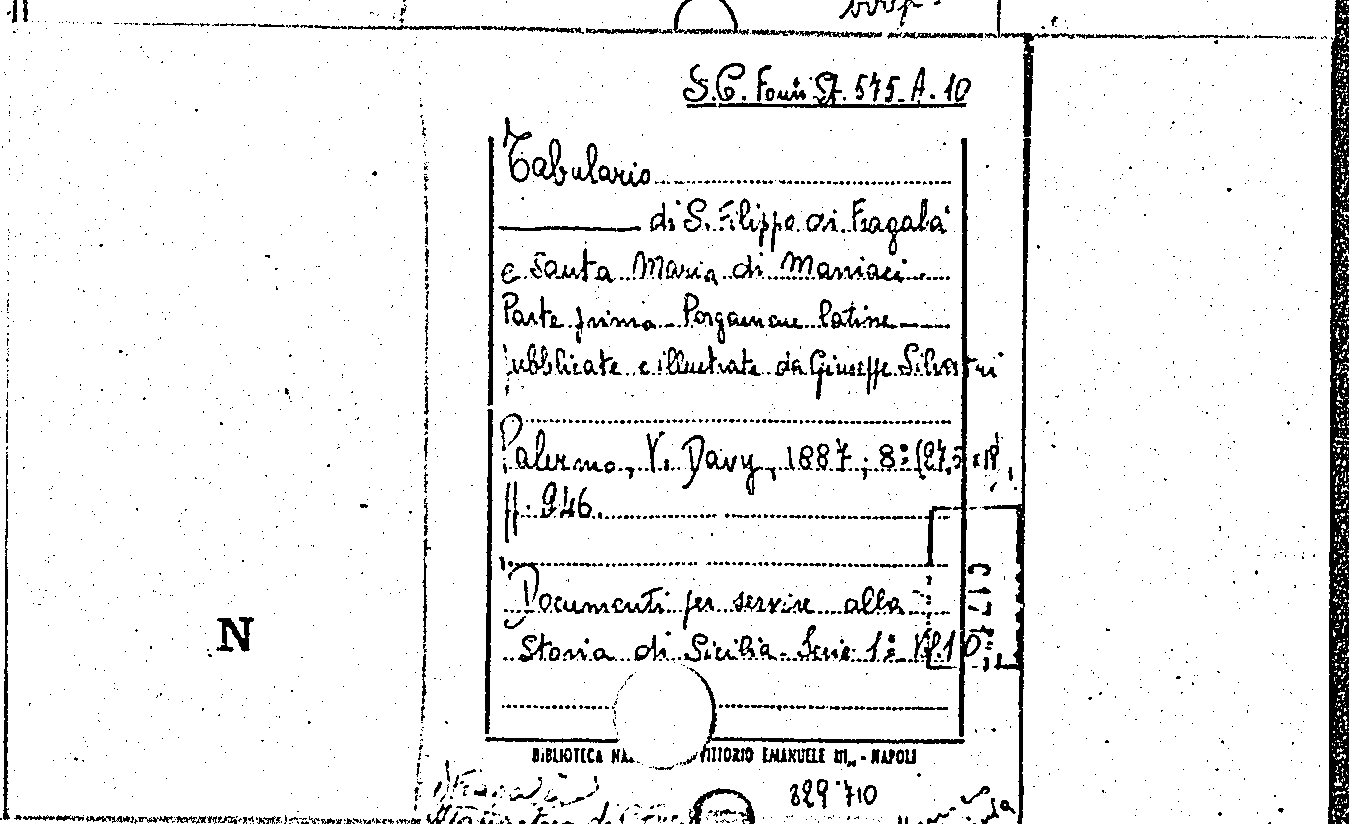 S.C. Fondi St. 575. A. 10
Tabulario
di S. Filippo di Fragalà
e Santa Maria di Maniaci
Parte prima Pergamene latine
pubblicate e illustrate da Giuseppe Silvestri
Palermo, V. Davy, 1887; 8º (27,5 × 18
pp. 246.
Documenti per servire alla
Storia di Sicilia. Serie 1ª Vol. 10º
N
BIBLIOTECA NA VITTORIO EMANUELE III„ - NAPOLI
829710